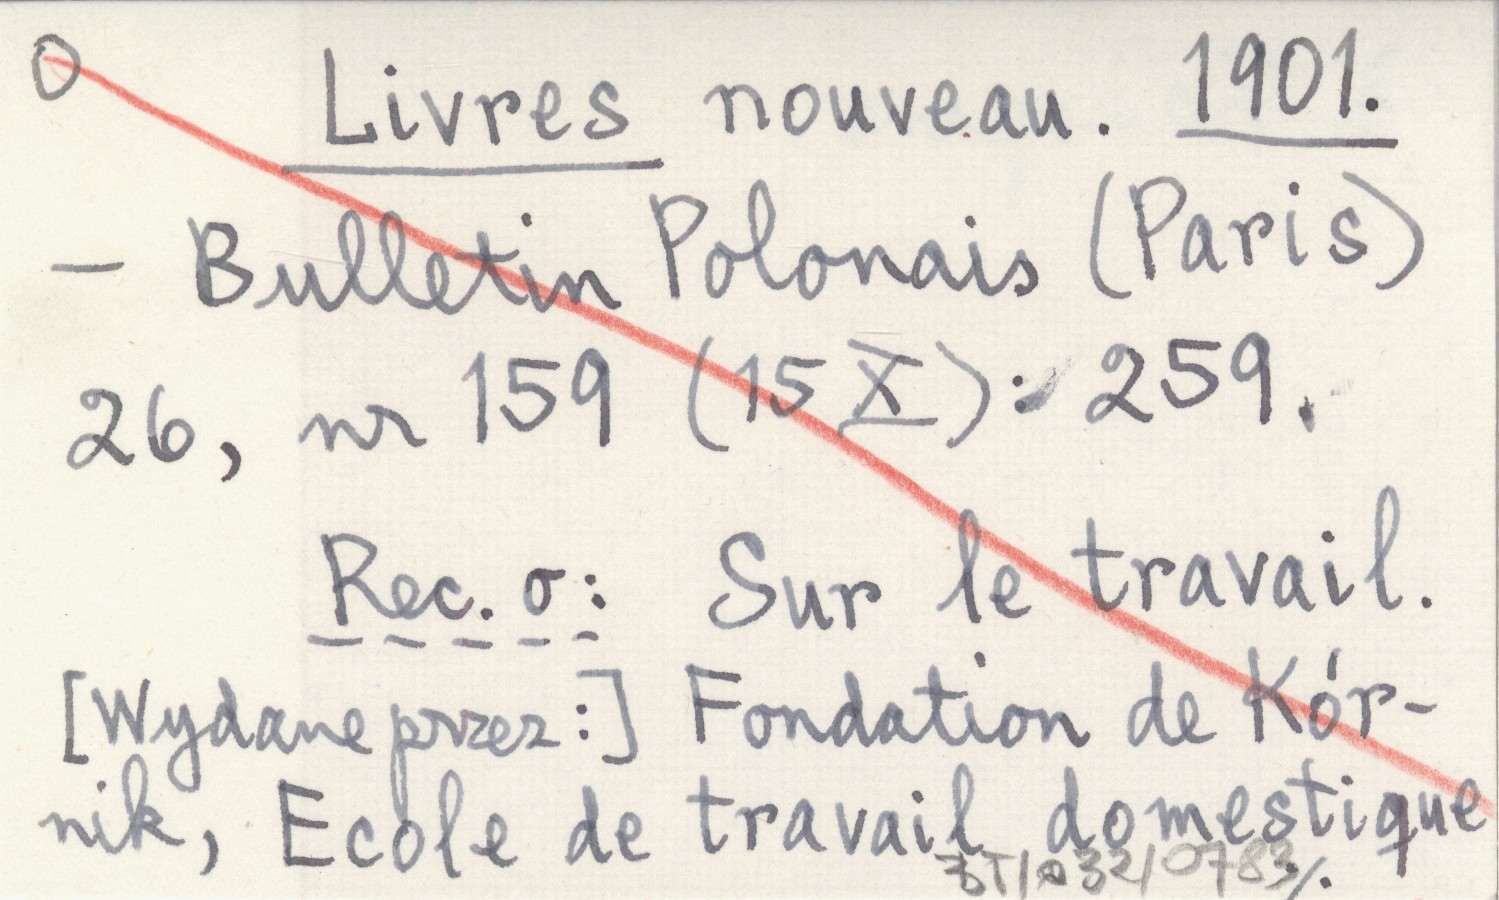 O Livres nouveau. 1901.
— Bulletin Polonais (Paris)
26, nr 159 (15 X): 259.
Rec. o: Sur le travail.
[Wydane przez:] Fondation de Kór-
nik, Ecole de travail domestique
/.